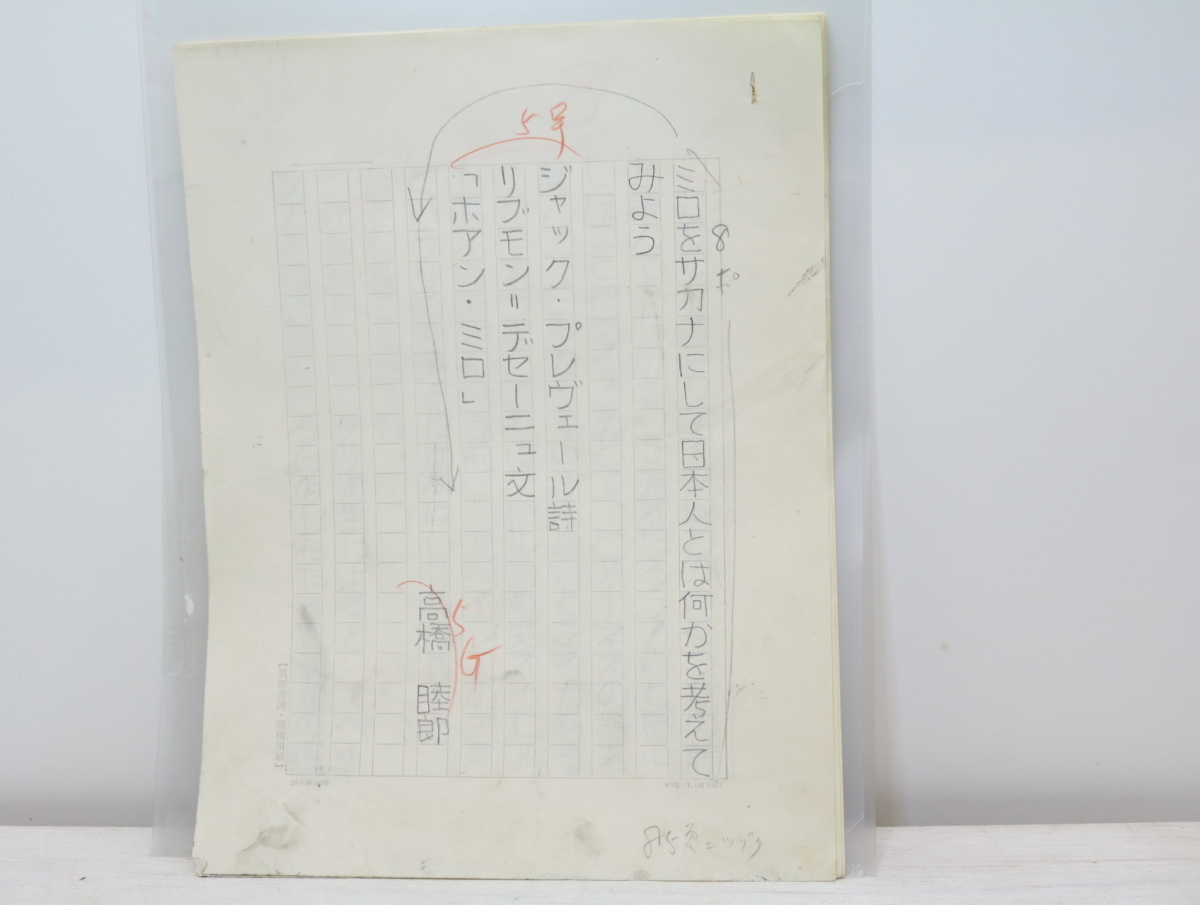 8ポ
ミロをサカナにして日本人とは何かを考えて
みよう
5号
ジャック・プレヴェール詩
リブモン＝デセーニュ文
「ホアン・ミロ」
5G
高橋 睦郎